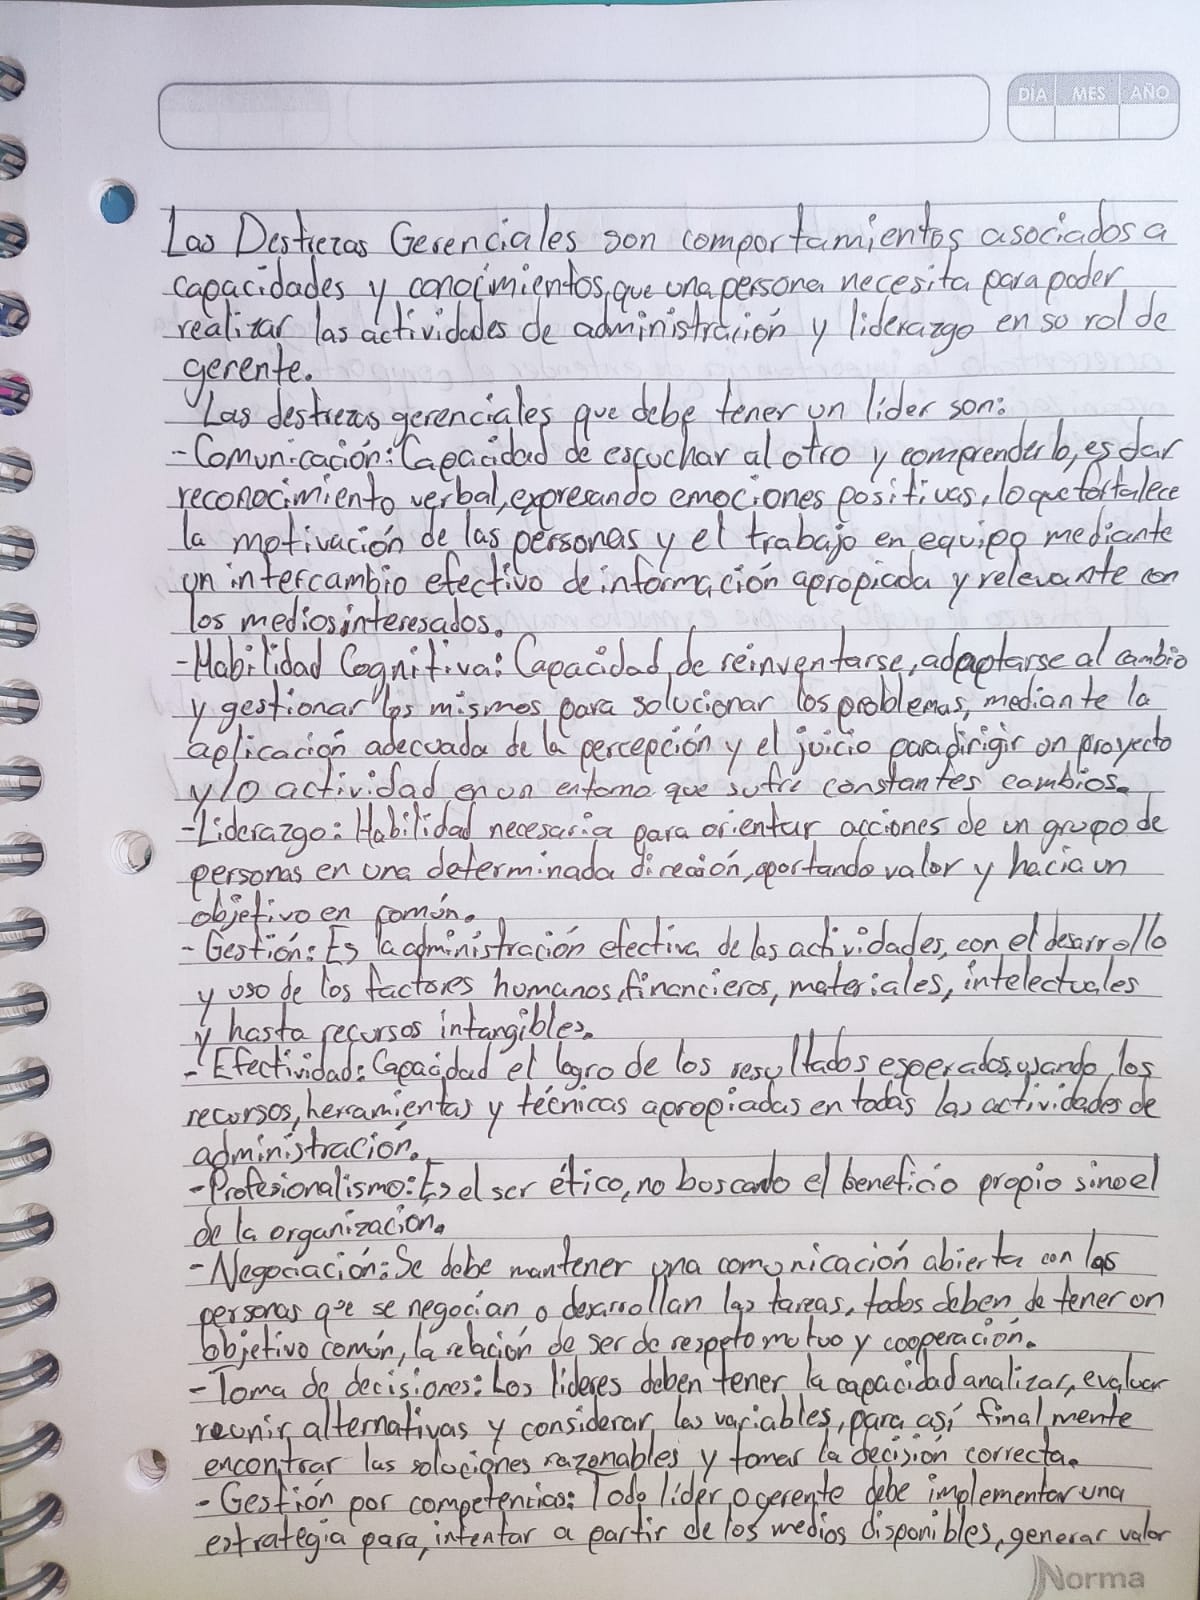 DÍA MES AÑO
Las Destrezas Gerenciales son comportamientos asociados a
capacidades y conocimientos, que una persona necesita para poder
realizar las actividades de administración y liderazgo en su rol de
gerente.
Las destrezas gerenciales que debe tener un líder son:
-Comunicación: Capacidad de escuchar al otro y comprenderlo, es dar
reconocimiento verbal, expresando emociones positivas, lo que fortalece
la motivación de las personas y el trabajo en equipo mediante
un intercambio efectivo de información apropiada y relevante con
los medios interesados.
-Habilidad Cognitiva: Capacidad de reinventarse, adaptarse al cambio
y gestionar los mismos para solucionar los problemas, mediante la
aplicación adecuada de la percepción y el juicio para dirigir un proyecto
y/o actividad en un entorno que sufre constantes cambios.
-Liderazgo: Habilidad necesaria para orientar acciones de un grupo de
personas en una determinada dirección, aportando valor y hacia un
objetivo en común.
- Gestión: Es la administración efectiva de las actividades, con el desarrollo
y uso de los factores humanos, financieros, materiales, intelectuales
y hasta recursos intangibles.
- Efectividad: Capacidad el logro de los resultados esperados, usando los
recursos, herramientas y técnicas apropiadas en todas las actividades de
administración.
-Profesionalismo: Es el ser ético, no buscando el beneficio propio sino el
de la organización.
-Negociación: Se debe mantener una comunicación abierta con las
personas que se negocian o desarrollan las tareas, todos deben de tener un
objetivo común, la relación de ser de respeto mutuo y cooperación.
-Toma de decisiones: Los líderes deben tener la capacidad analizar, evaluar
reunir alternativas y considerar las variables, para así finalmente
encontrar las soluciones razonables y tomar la decisión correcta.
- Gestión por competencias: Todo líder o gerente debe implementar una
estrategia para, intentar a partir de los medios disponibles, generar valor
Norma